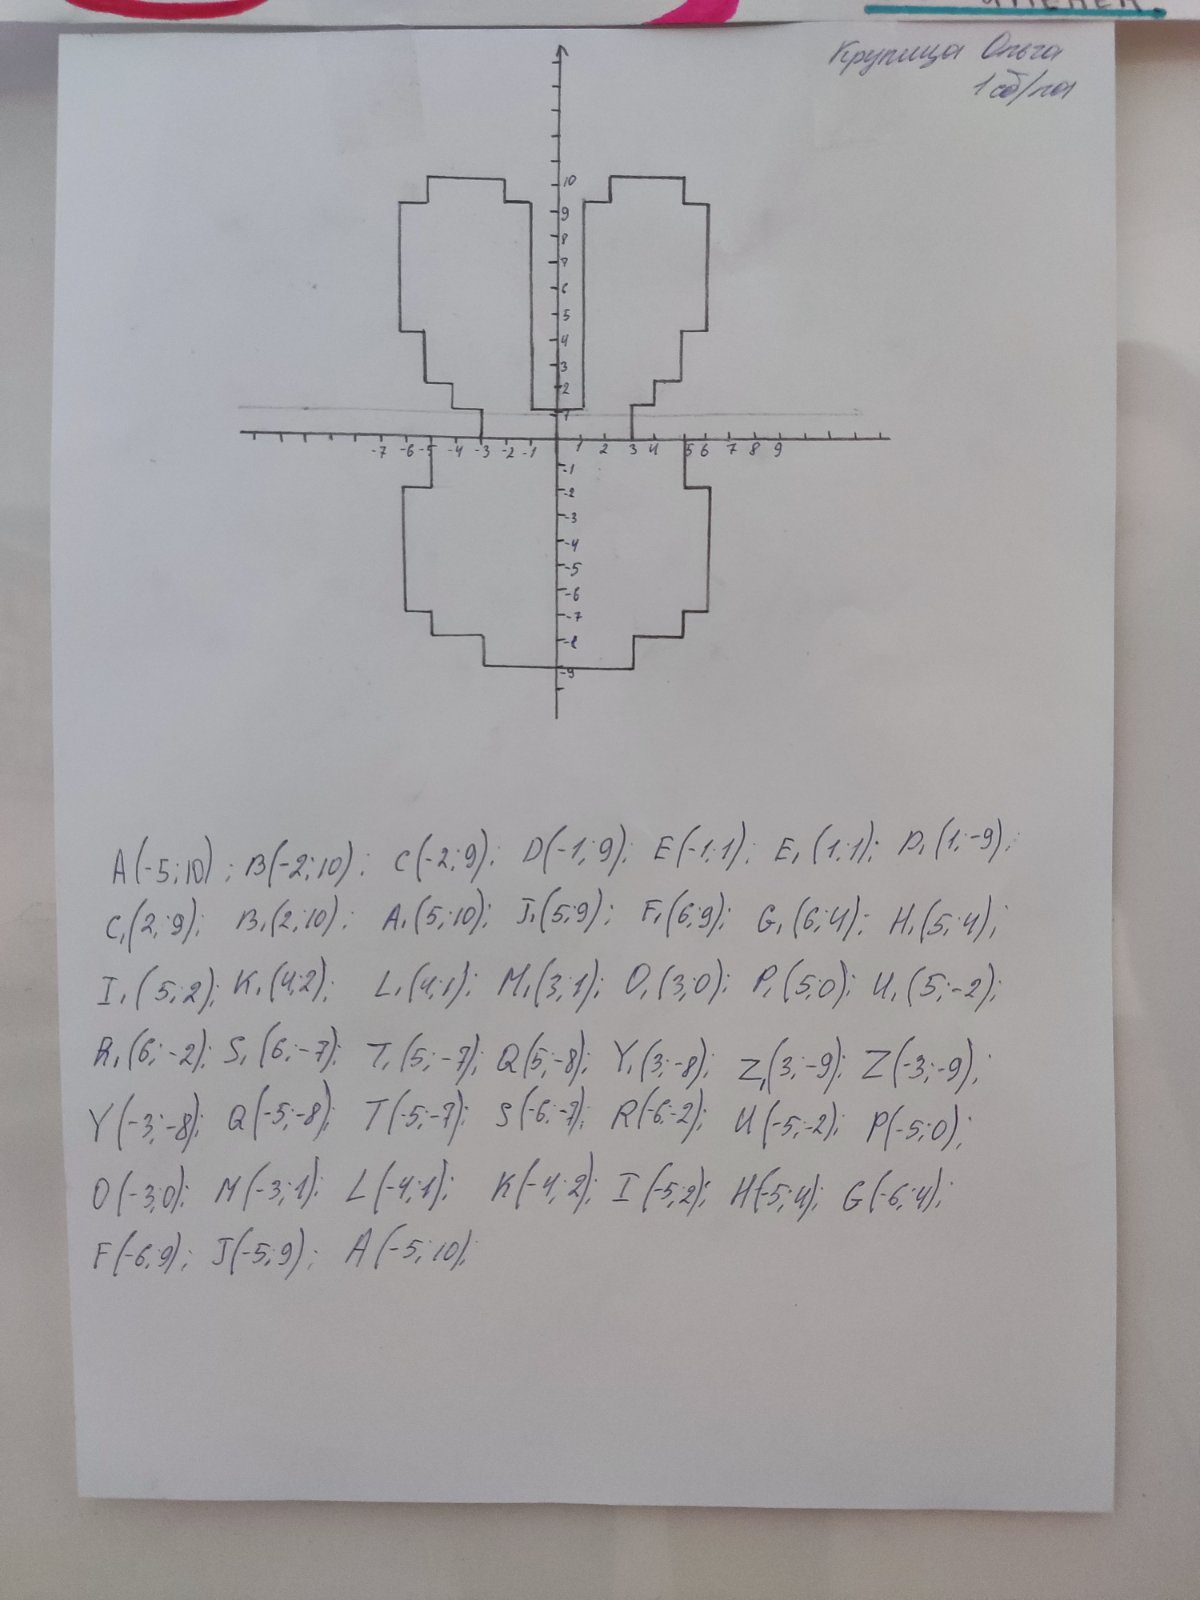 Крупица Ольга
10
9
8
7
6
5
4
3
2
1
-7 -6 -5 -4 -3 -2 -1 1 2 3 4 5 6 7 8 9
-1
-2
-3
-4
-5
-6
-7
-8
-9
A(-5;10); B(-2;10); C(-2;9); D(-1;9); E(-1;1); E₁(1;1); D₁(1;-9);
C₁(2;9); B₁(2;10); A₁(5;10); J₁(5;9); F₁(6;9); G₁(6;4); H₁(5;4);
I₁(5;2); K₁(4;2); L₁(4;1); M₁(3;1); O₁(3;0); P₁(5;0); U₁(5;-2);
R₁(6;-2); S₁(6;-7); T₁(5;-7); Q(5;-8); Y₁(3;-8); Z₁(3;-9); Z(-3;-9);
Y(-3;-8); Q(-5;-8); T(-5;-7); S(-6;-7); R(-6;-2); U(-5;-2); P(-5;0);
O(-3;0); M(-3;1); L(-4;1); K(-4;2); I(-5;2); H(-5;4); G(-6;4);
F(-6;9); J(-5;9); A(-5;10);